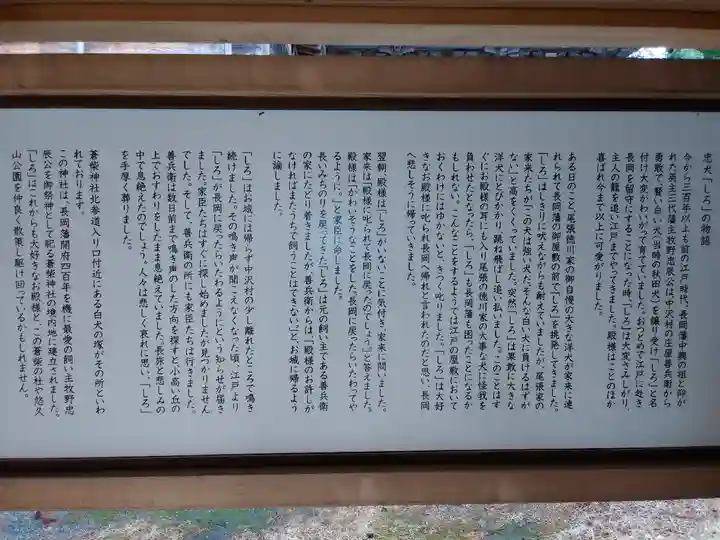 忠犬「しろ」の物語
今から三百年以上も前の江戸時代、長岡藩中興の祖と仰が
れた英主三代藩主牧野忠辰公は中沢村の庄屋善兵衛から
勇敢で賢い白い犬(当時の秋田犬)を譲り受け「しろ」と名
付け大変かわいがって育てていました。おつとめで江戸に赴き
長岡を留守にすることになった時、「しろ」は大変さみしがり、
主人の籠を追い江戸までやってきました。殿様はことのほか
喜ばれ今まで以上に可愛がりました。
ある日のこと尾張徳川家の御自慢の大きな洋犬が家来に連
れられて長岡藩の御屋敷の前で「しろ」を挑発してきました。
「しろ」はしきりに吠えながらも耐えていましたが、尾張家の
家来たちが「この犬は強い犬だ。そんな白い犬に負けるはずが
ない」と高をくくっていました。突然「しろ」は果敢に大きな
洋犬にとびかかり、跳ね飛ばし追い払いました。このことはす
ぐにお殿様の耳にも入り「尾張の徳川家の大事な犬に怪我を
負わせたとなったら、「しろ」も長岡藩も困ったことになるか
もしれない。こんなことをするようでは江戸の屋敷において
おくわけにはゆかない」と、きつく叱りました。「しろ」は大好
きなお殿様に叱られ長岡へ帰れと言われたのだと思い、長岡
へ悲しそうに帰っていきました。
翌朝、殿様は「しろ」がいないことに気付き、家来に問いました。
家来は「殿様に叱られて長岡に戻ったのでしょう」と答えました。
殿様は「かわいそうなことをした。長岡に戻ったらいたわってや
るように。」と家臣に命じました。
長いみちのりを戻ってきた「しろ」は元の飼い主である善兵衛
の家にたどり着きましたが、善兵衛からは、「殿様のお許しが
なければまたうちで飼うことはできない」と、お城に帰るよう
に諭しました。
「しろ」はお城には帰らず中沢村の少し離れたところで鳴き
続けました。その鳴き声が聞こえなくなった頃、江戸より
「しろ」が長岡に戻ったらいたわるようにという知らせが届き
ました。家臣たちはすぐに探し始めましたが見つかりません
でした。そして、善兵衛の所にも家臣たちは行きました。
善兵衛は数日前まで鳴き声のした方向を探すと小高い丘の
上でおすわりをしたまま息絶えていました。長旅と悲しみの
中で息絶えたのでしょう。人々は悲しく哀れに思い、「しろ」
を手厚く葬りました。
蒼柴神社北参道入り口付近にある白犬の塚がその所といわ
れております。
この神社は、長岡藩開府四百年を機に最愛の飼い主牧野忠
辰公を御祭神として祀る蒼柴神社の境内地に建立されました。
「しろ」はこれからも大好きなお殿様と、この蒼柴の杜や悠久
山公園を仲良く散策し駆け回っているかもしれません。